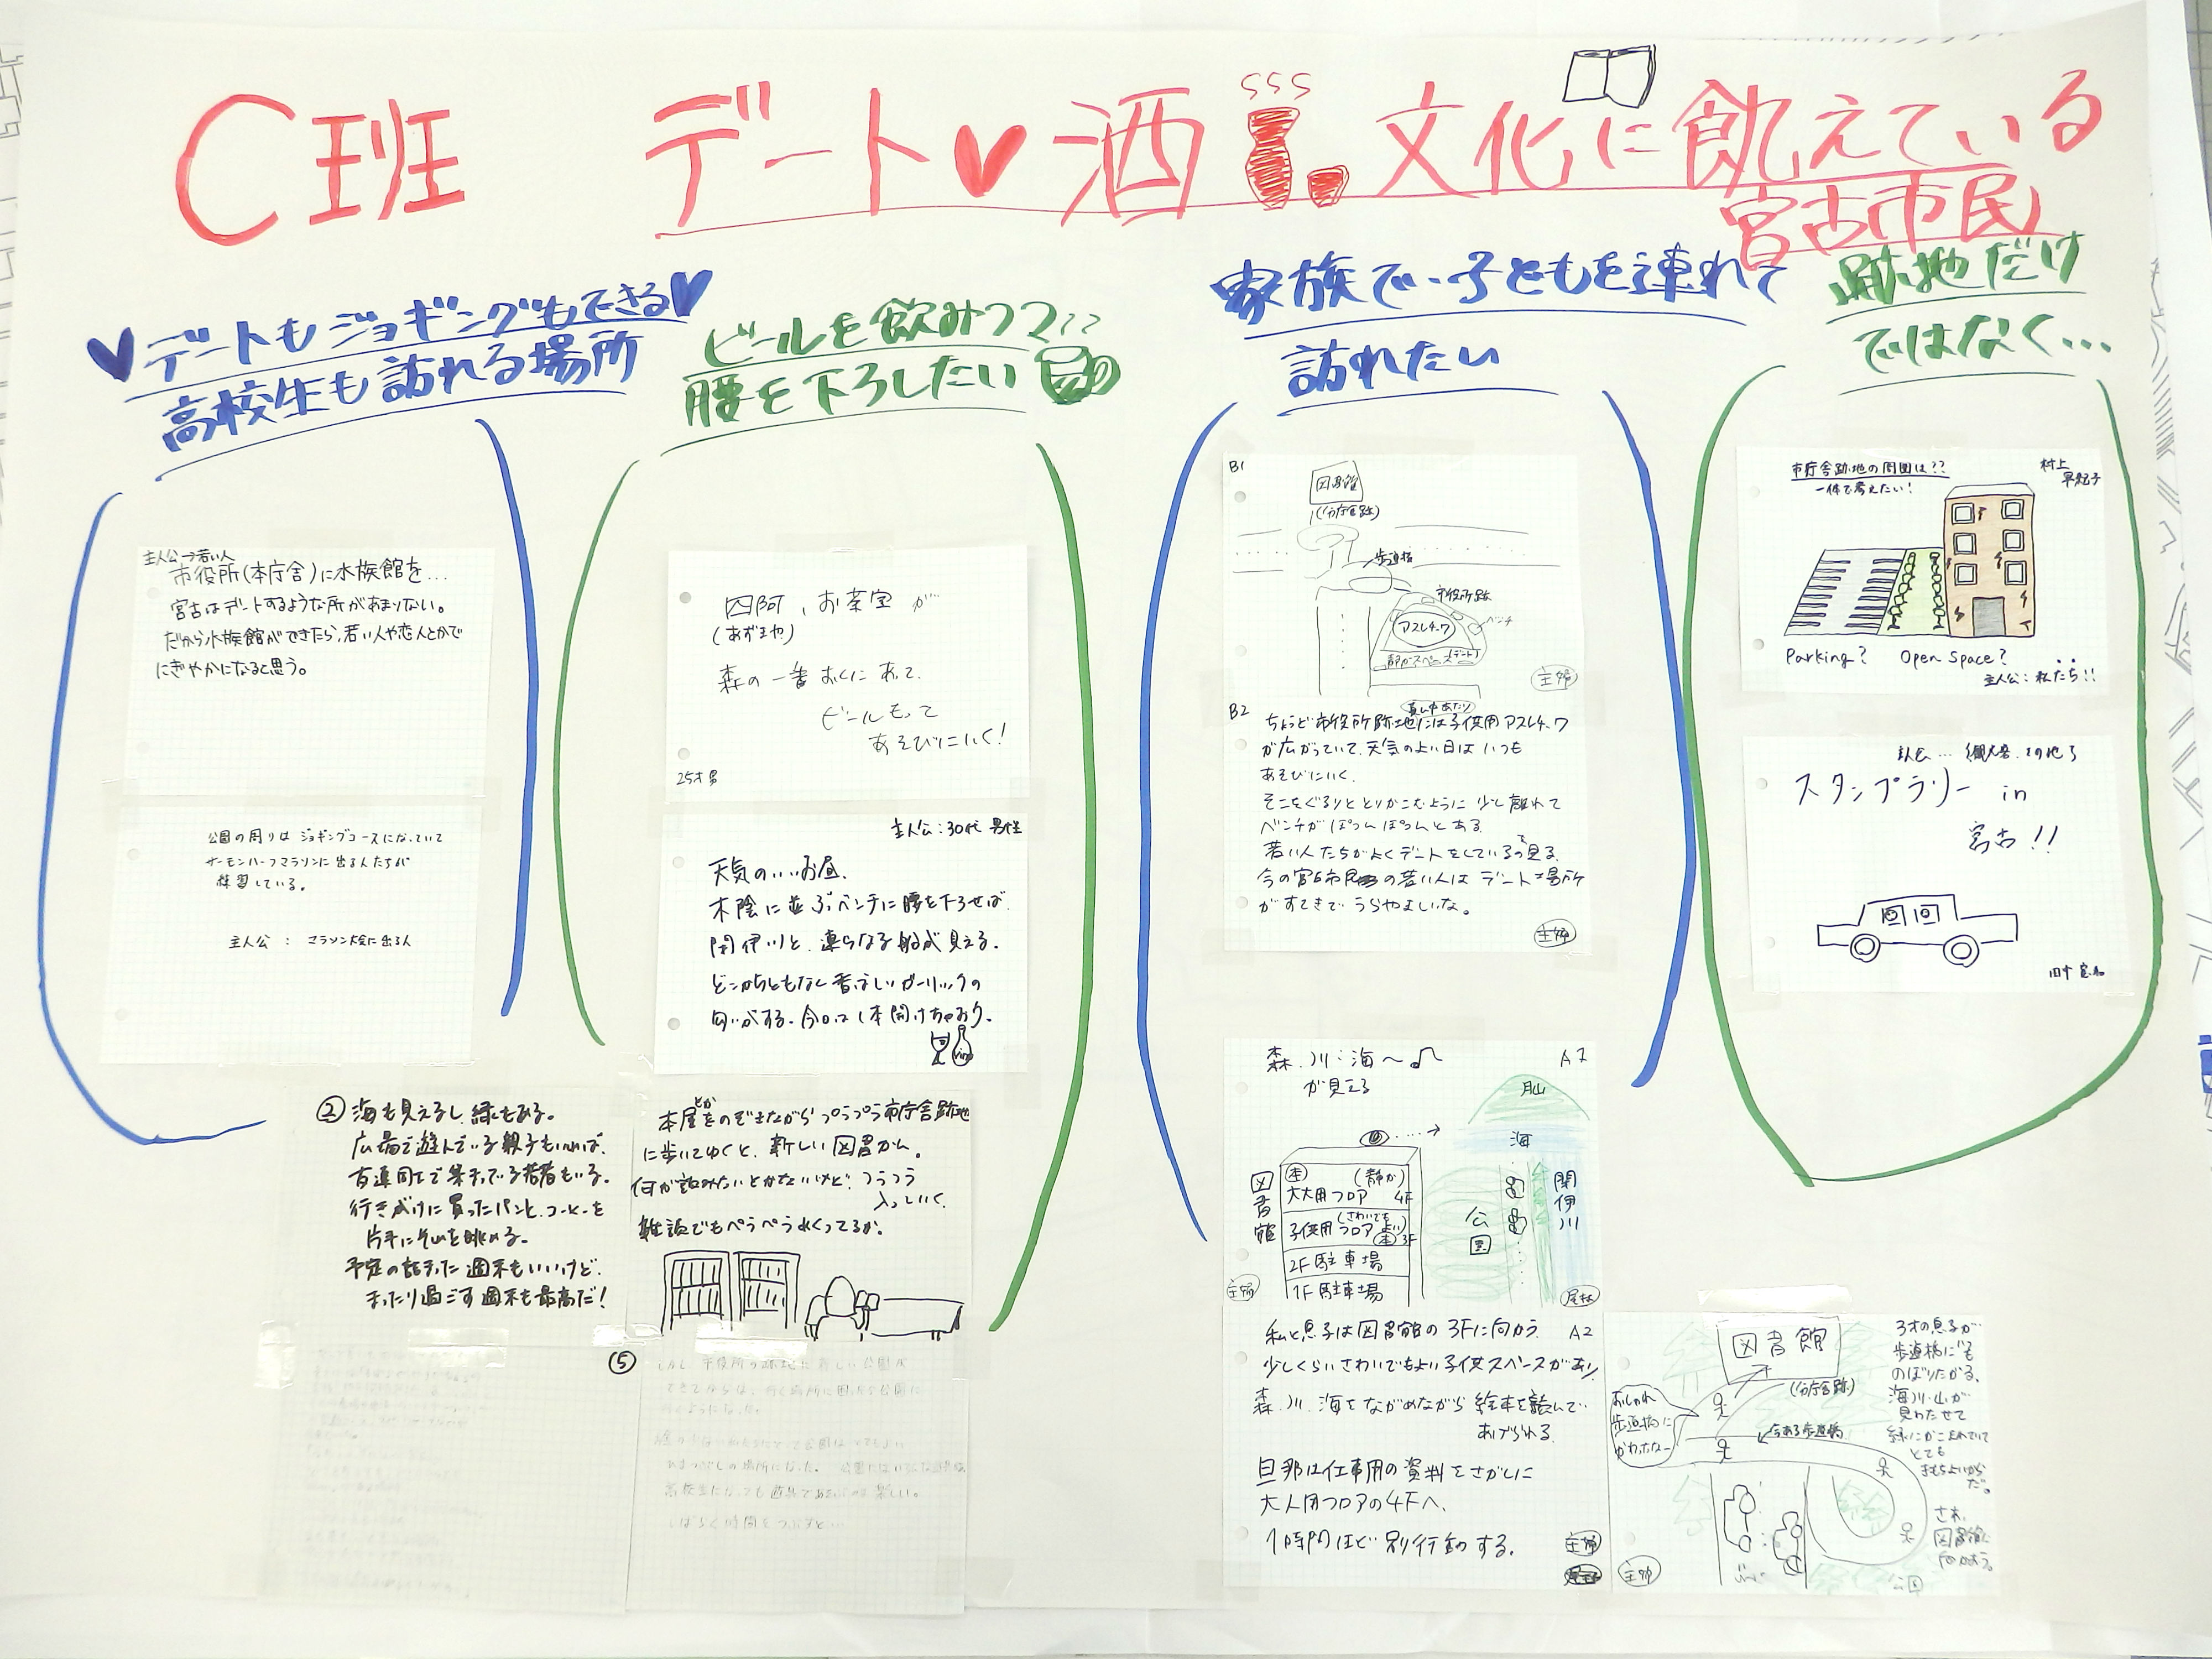 C班 デート♥酒 文化に飢えている
宮古市民
デートもジョギングもできる
高校生も訪れる場所
主人公→若い人
市役所(本庁舎)に水族館を…
宮古はデートするような所があまりない。
だから水族館ができたら、若い人や恋人とかで
にぎやかになると思う。
公園の周りはジョギングコースになっていて
サーモンハーフマラソンに出る人たちが
練習している。
主人公 : マラソン大会に出る人
② 海も見えるし、緑もある。
広場で遊んでいる親子もいれば、
友達同士で笑っている若者もいる。
行きがけに買ったパンとコーヒーを
片手にそれを眺める。
予定の詰まった週末もいいけど、
まったり過ごす週末も最高だ!
ビールを飲みつつ
腰を下ろしたい
四阿、お茶室が
(あずまや)
森の一番おくにあって、
ビールもって
あそびにいく!
25才男
主人公:30代 男性
天気のいいお昼、
木陰に並ぶベンチに腰を下ろせば、
閉伊川と、連らなる船が見える。
どこからともなく香ばしいガーリックの
匂いがする。今日は1本開けちゃおう。
本屋とかをのぞきながらプラプラ市庁舎跡地
に歩いてゆくと、新しい図書かん。
何が読みたいとかないけど、フラフラ
入っていく。
雑誌でもぺらぺらめくってるか。
⑤
しかし市役所の跡地に新しい公園が
できてからは、行く場所に困れば公園に
行くようになった。
高校生になっても遊具であそぶのは楽しい。
しばらく時間をつぶすと…
家族で・子どもを連れて
訪れたい
B1
図書館
(分庁舎跡)
歩道橋
市役所跡
アスレチック
ベンチ
主婦
B2
真ん中あたり
ちょうど市役所跡地には子供用アスレチック
が広がっていて、天気のよい日はいつも
あそびにいく。
そこをぐるりととりかこむように少し離れて
ベンチがぽつんぽつんとある。
若い人たちがよくデートをしているのを見る。
今の宮古市民の若い人はデート場所
がすてきでうらやましいな。
主婦
森・川・海〜♫
が見える
A1
月山
海
閉伊川
公園
図書館
本 (静か)
大人用フロア 4F
(さわいでもよい)
子供用フロア 本 3F
2F 駐車場
1F 駐車場
主婦
私と息子は図書館の3Fに向かう A2
少しくらいさわいでもよい子供スペースがあり
森、川、海をながめながら絵本を読んで
あげられる。
旦那は仕事用の資料をさがしに
大人用フロアの4Fへ。
1時間ほど別行動する。
主婦
図書館
(分庁舎跡)
おしゃれ
歩道橋に
かわったなー
今ある歩道橋
公園
主婦
3才の息子が
歩道橋にも
のぼりたがる。
海川山が
見わたせて
緑にかこまれていて
とても
きもちよいから
だ。
さあ、
図書館に
向かおう。
跡地だけ
ではなく…
市庁舎跡地の周囲は??
一体で考えたい!
村上
早紀子
Parking? Open Space?
主人公:私たち!!
スタンプラリー in
宮古!!